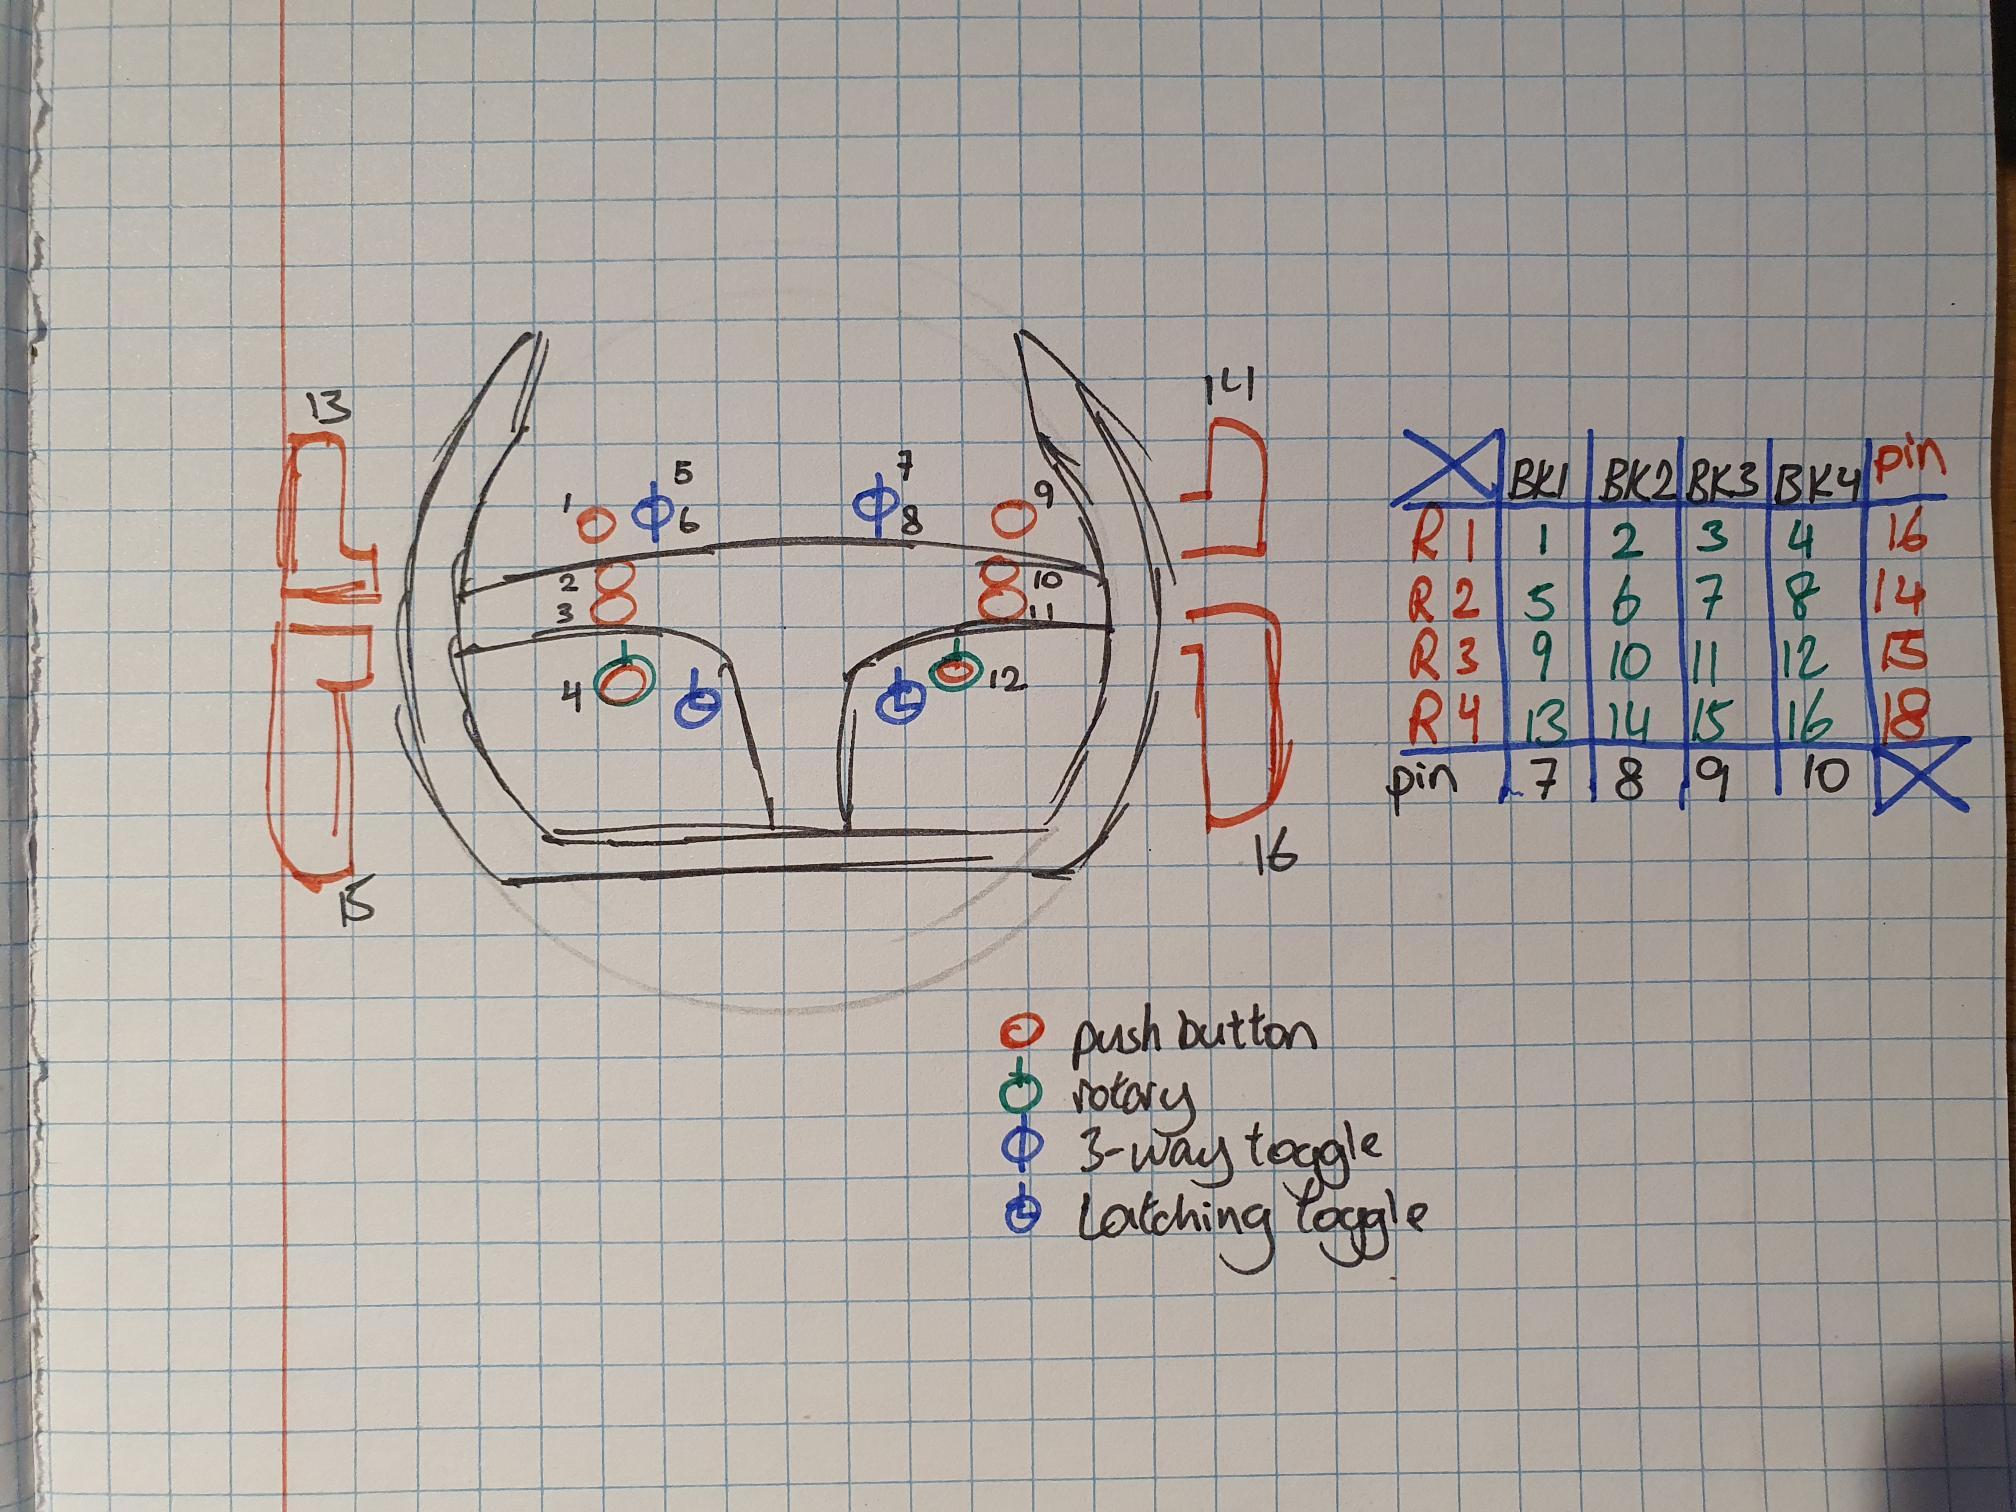 13
14
5
7
1
6
8
9
2
10
3
11
4
12
15
16
BK1 BK2 BK3 BK4 pin
R1 1 2 3 4 16
R2 5 6 7 8 14
R3 9 10 11 12 15
R4 13 14 15 16 18
pin 7 8 9 10
push button
rotary
3-way toggle
Latching toggle